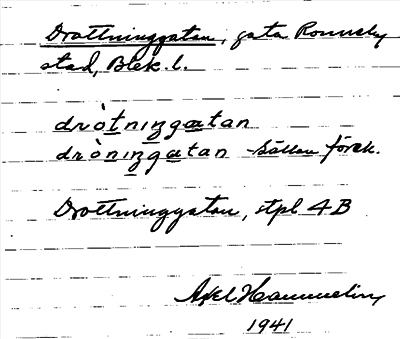 Drottninggatan, gata Ronneby
stad, Blek. l.
dròtniŋgatan
dròniŋgatan sällan förek.
Drottninggatan, stpl 4B
Axel Hammelin
1941